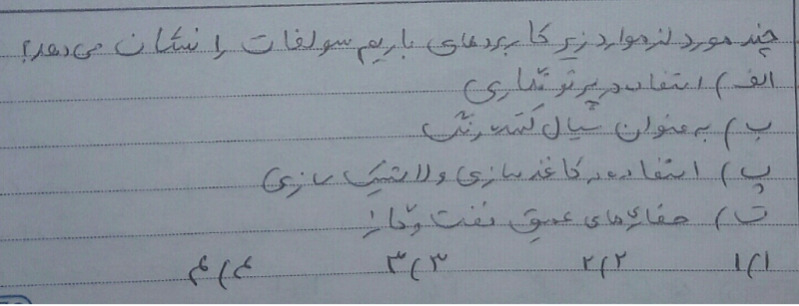 چند مورد از موارد زیر کاربردهای باریم سولفات را نشان می‌دهد؟
الف) استفاده در پرتونگاری
ب) به عنوان سیال کننده رنگ
پ) استفاده در کاغذ سازی و لاستیک سازی
ت) حفاری‌های عمیق نفت و گاز
۱) ۱ ۲) ۲ ۳) ۳ ۴) ۴